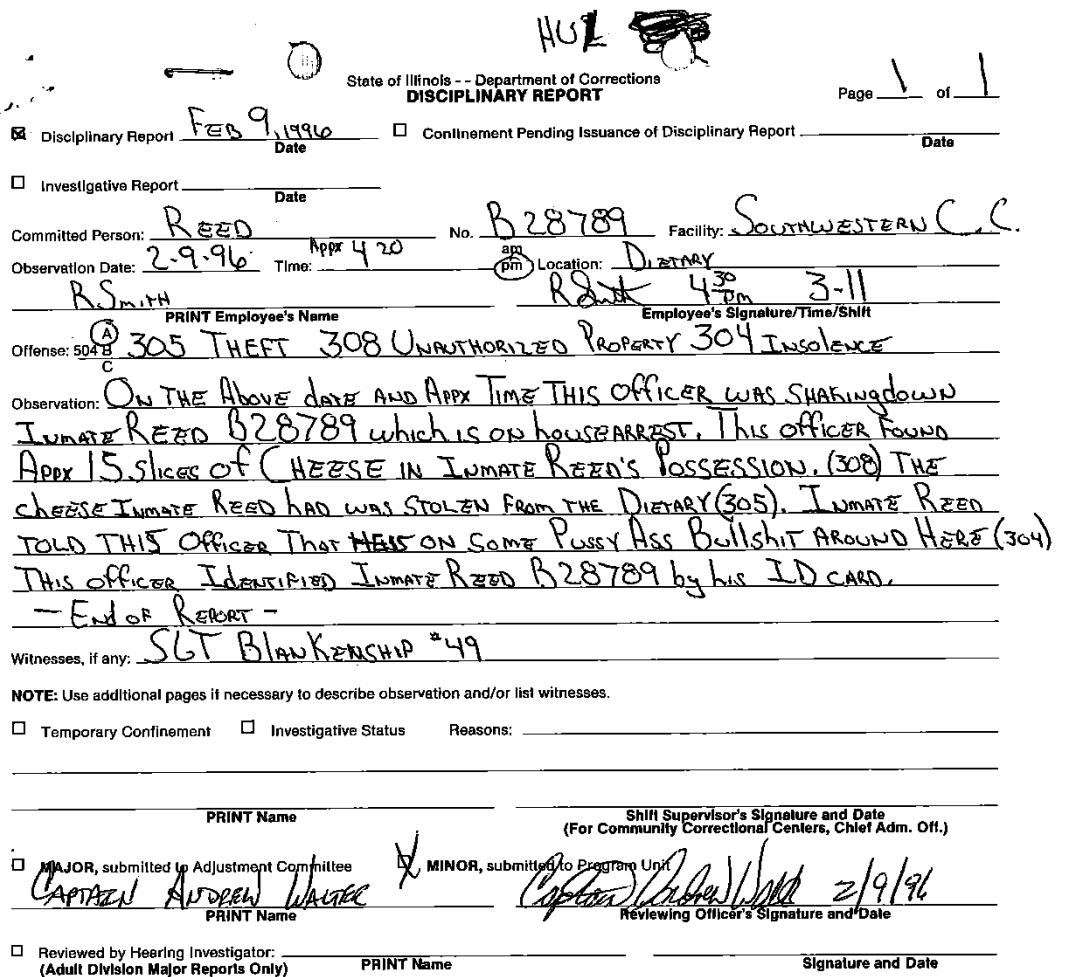 HU2
State of Illinois - - Department of Corrections
DISCIPLINARY REPORT
Page 1 of 1
☒ Disciplinary Report FEB 9, 1996 ☐ Confinement Pending Issuance of Disciplinary Report
Date Date
☐ Investigative Report
Date
Committed Person: REED No. B28789 Facility: SOUTHWESTERN C.C.
Observation Date: 2-9-96 Time: Appx 4 20 am pm Location: DIETARY
R SMITH R Smith 4 30 pm 3-11
PRINT Employee's Name Employee's Signature/Time/Shift
Offense: 504 A B C 305 THEFT 308 UNAUTHORIZED PROPERTY 304 INSOLENCE
Observation: ON THE Above date AND Appx TIME THIS Officer WAS SHAKINGdown
INMATE REED B28789 which is on housearrest. This officer Found
Appx 15 slices of CHEESE IN INMATE REED'S POSSESSION. (308) THE
cheese INMATE REED had was STOLEN FROM THE DIETARY (305). INMATE REED
TOLD THIS Officer That HE IS ON Some Pussy Ass Bullshit AROUND HERE (304)
THIS officer IDENTIFIED INMATE REED B28789 by his ID CARD.
- End of REPORT -
Witnesses, if any: SGT BLANKENSHIP #49
NOTE: Use additional pages if necessary to describe observation and/or list witnesses.
☐ Temporary Confinement ☐ Investigative Status Reasons:
PRINT Name Shift Supervisor's Signature and Date
(For Community Correctional Centers, Chief Adm. Off.)
☐ MAJOR, submitted to Adjustment Committee ☒ MINOR, submitted to Program Unit
CAPTAIN ANDREW WALTER Captain Andrew 2/9/96
PRINT Name Reviewing Officer's Signature and Date
☐ Reviewed by Hearing Investigator:
(Adult Division Major Reports Only) PRINT Name Signature and Date